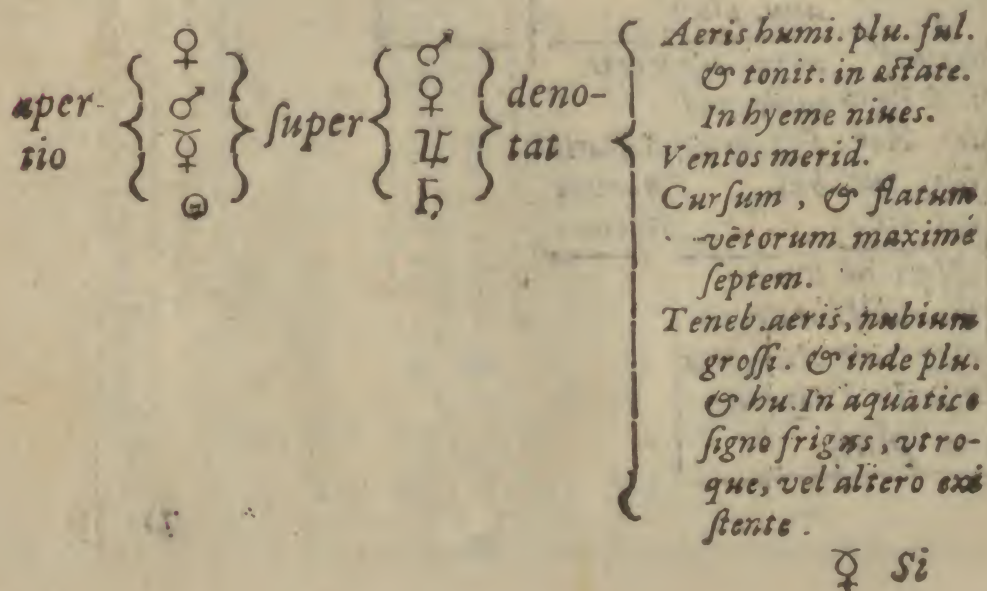 aper-
tio
♀
♂
☿
☉
ſuper
♂
♀
♃
♄
deno-
tat
Aeris humi. plu. ful.
& tonit. in æſtate.
In hyeme niues.
Ventos merid.
Curſum, & flatum
vētorum maximè
ſeptem.
Teneb. aeris, nubium
groſſi. & inde plu.
& hu. In aquatico
ſigno frigus, vtro-
que, vel altero exi
ſtente.
☿ Si